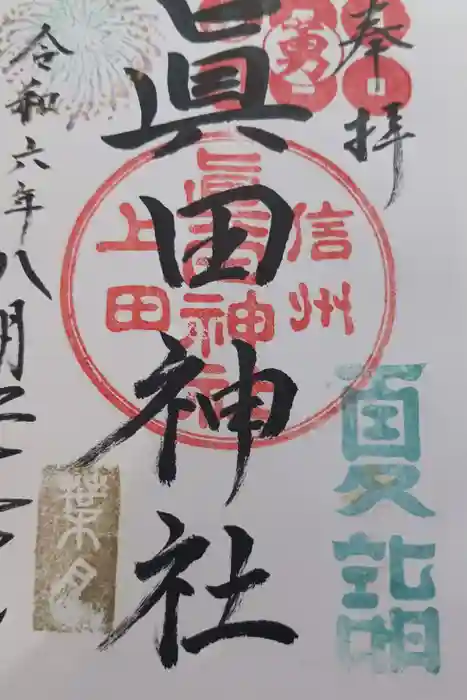 奉拝
夏詣
信州
上田
眞田神社
眞田神社
令和六年八月二
葉月